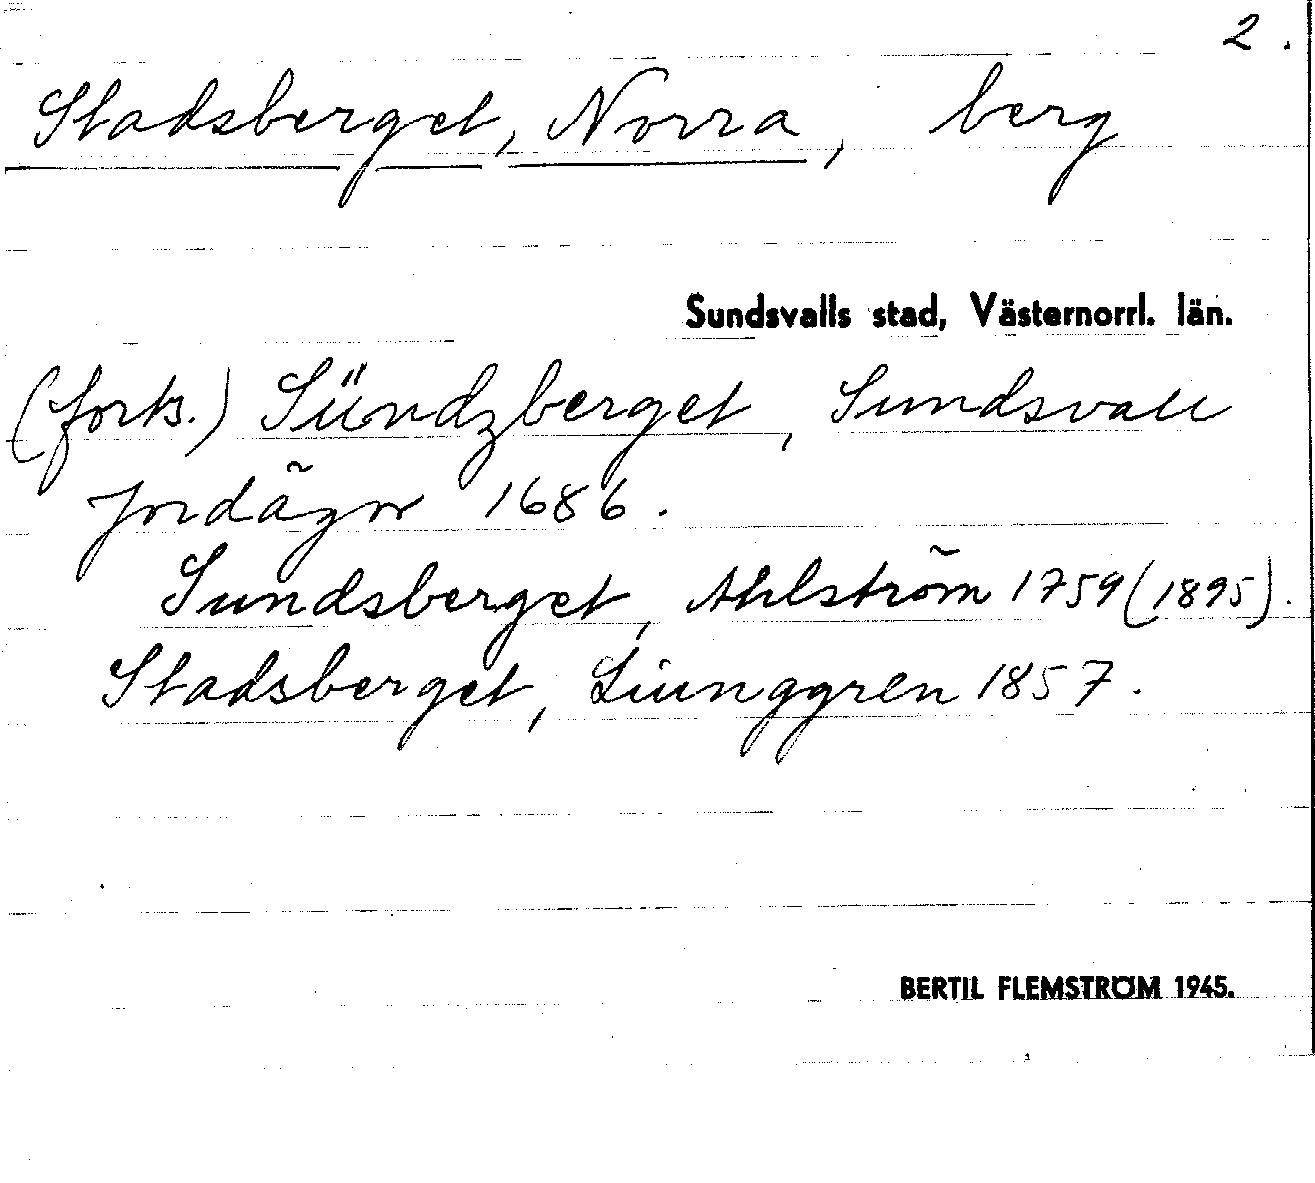 2.
Stadsberget, Norra, berg
Sundsvalls stad, Västernorrl. län.
(forts.) Sündzberget, Sundsvall
jordägor 1686.
Sundsberget, Ahlström 1759 (1895).
Stadsberget, Liunggren 1857.
BERTIL FLEMSTRÖM 1945.